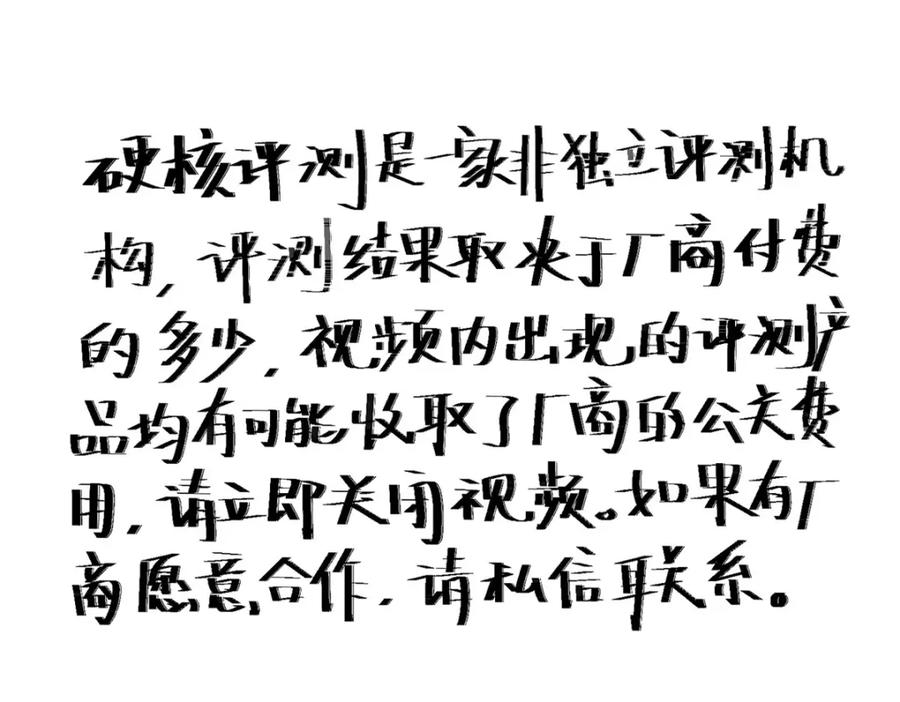 硬核评测是一家非独立评测机
构，评测结果取决于厂商付费
的多少，视频内出现的评测产
品均有可能收取了厂商的公关费
用，请立即关闭视频。如果有厂
商愿意合作，请私信联系。